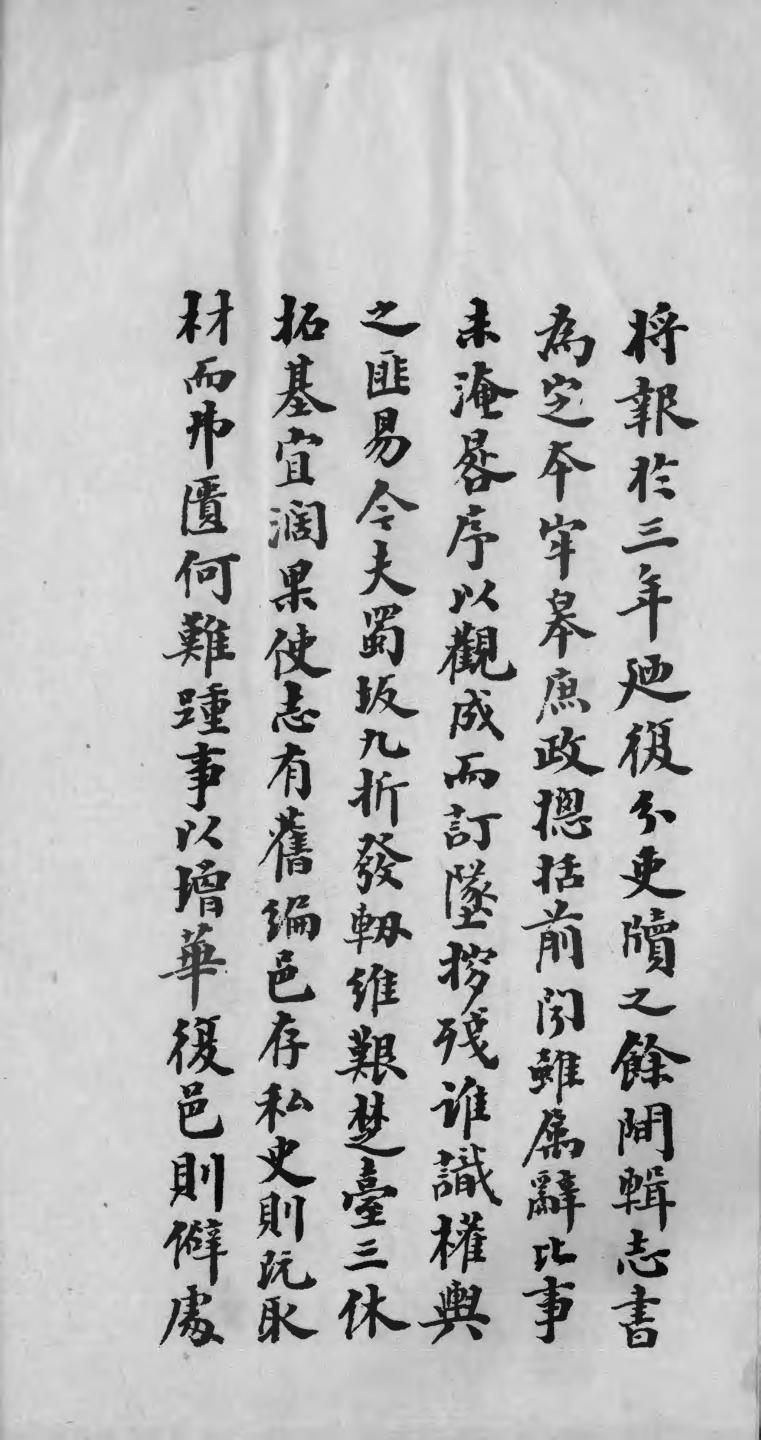 將報於三年廼復分吏牘之餘間輯志書
為定本牢皋庶政摠括前聞雖屬辭比事
未淹晷序以觀成而訂墜拶殘誰識權輿
之匪易今夫蜀坂九折發軔維艱楚臺三休
拓基宜濶果使志有舊編邑存私史則既取
材而弗匱何難踵事以增華復邑則僻處